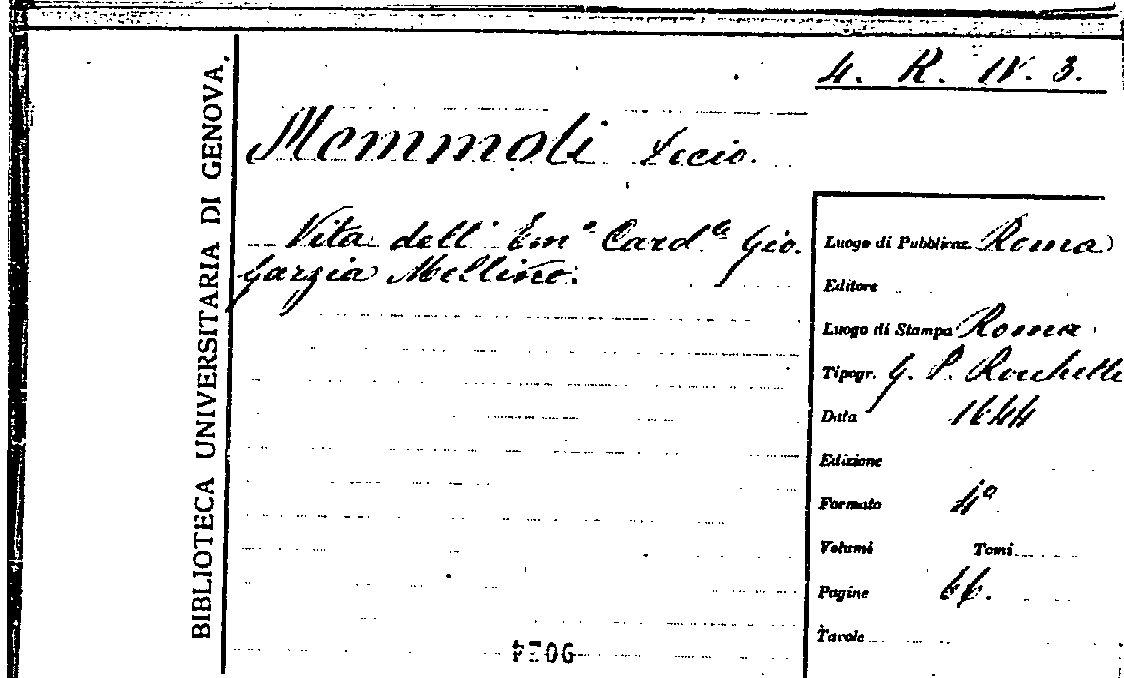 4. R. IV. 3.
BIBLIOTECA UNIVERSITARIA DI GENOVA
Memmoli Decio.
Vita dell' Em.º Card.le Gio.
Garzia Mellino.
Luogo di Pubblicaz. Roma
Editore
Luogo di Stampa Roma
Tipogr. G. P. Rocchetti
Data 1644
Edizione
Formato 4º
Volumi Tomi
Pagine 66.
Tavole